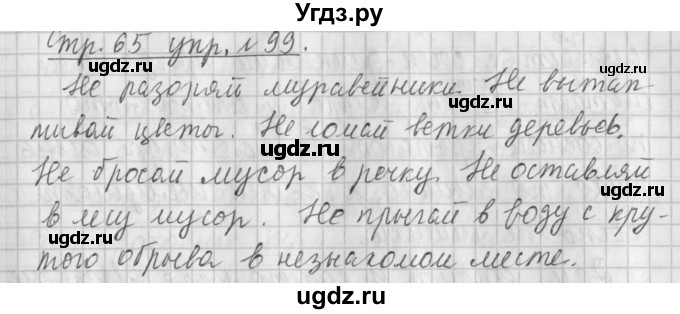 Угдз.ру
Стр. 65 упр. № 99.
ugdz.ru ugdz.ru
Не разоряй муравейники. Не вытап-
ugdz.ru
тывай цветы. Не ломай ветки деревьев.
ugdz.ru ugdz.ru
Не бросай мусор в речку. Не оставляй
ugdz.ru
в лесу мусор. Не прыгай в воду с кру-
ugdz.ru ugdz.ru
того обрыва в незнакомом месте.
ugdz.ru